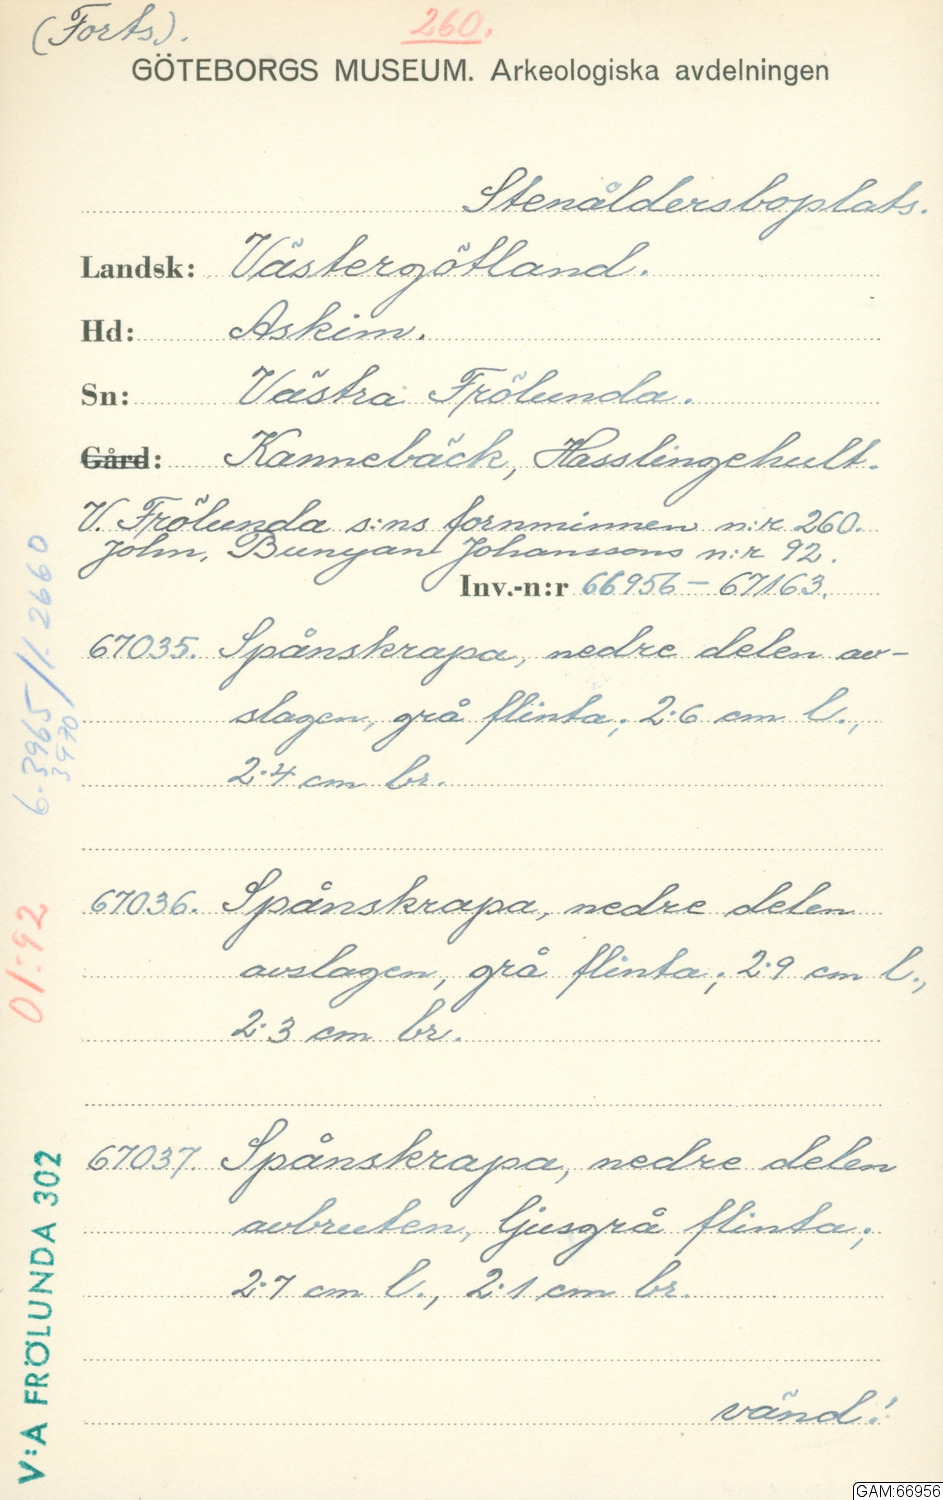 (Forts).
260.
GÖTEBORGS MUSEUM. Arkeologiska avdelningen
Stenåldersboplats.
Landsk: Västergötland.
Hd: Askim.
Sn: Västra Frölunda.
Gård: Kannebäck, Hasslingehult.
V. Frölunda s:ns fornminnen n:r 260.
John, Bunyan Johanssons n:r 92.
Inv.-n:r 66956 – 67163.
67035. Spånskrapa, nedre delen av-
slagen, grå flinta; 2·6 cm l.,
2·4 cm br.
67036. Spånskrapa, nedre delen
avslagen, grå flinta; 2·9 cm l.,
2·3 cm br.
67037. Spånskrapa, nedre delen
avbruten, ljusgrå flinta;
2·7 cm l., 2·1 cm br.
vänd!
6-3965/1-2660
3970
01:92
V:A FRÖLUNDA 302
GAM:66956